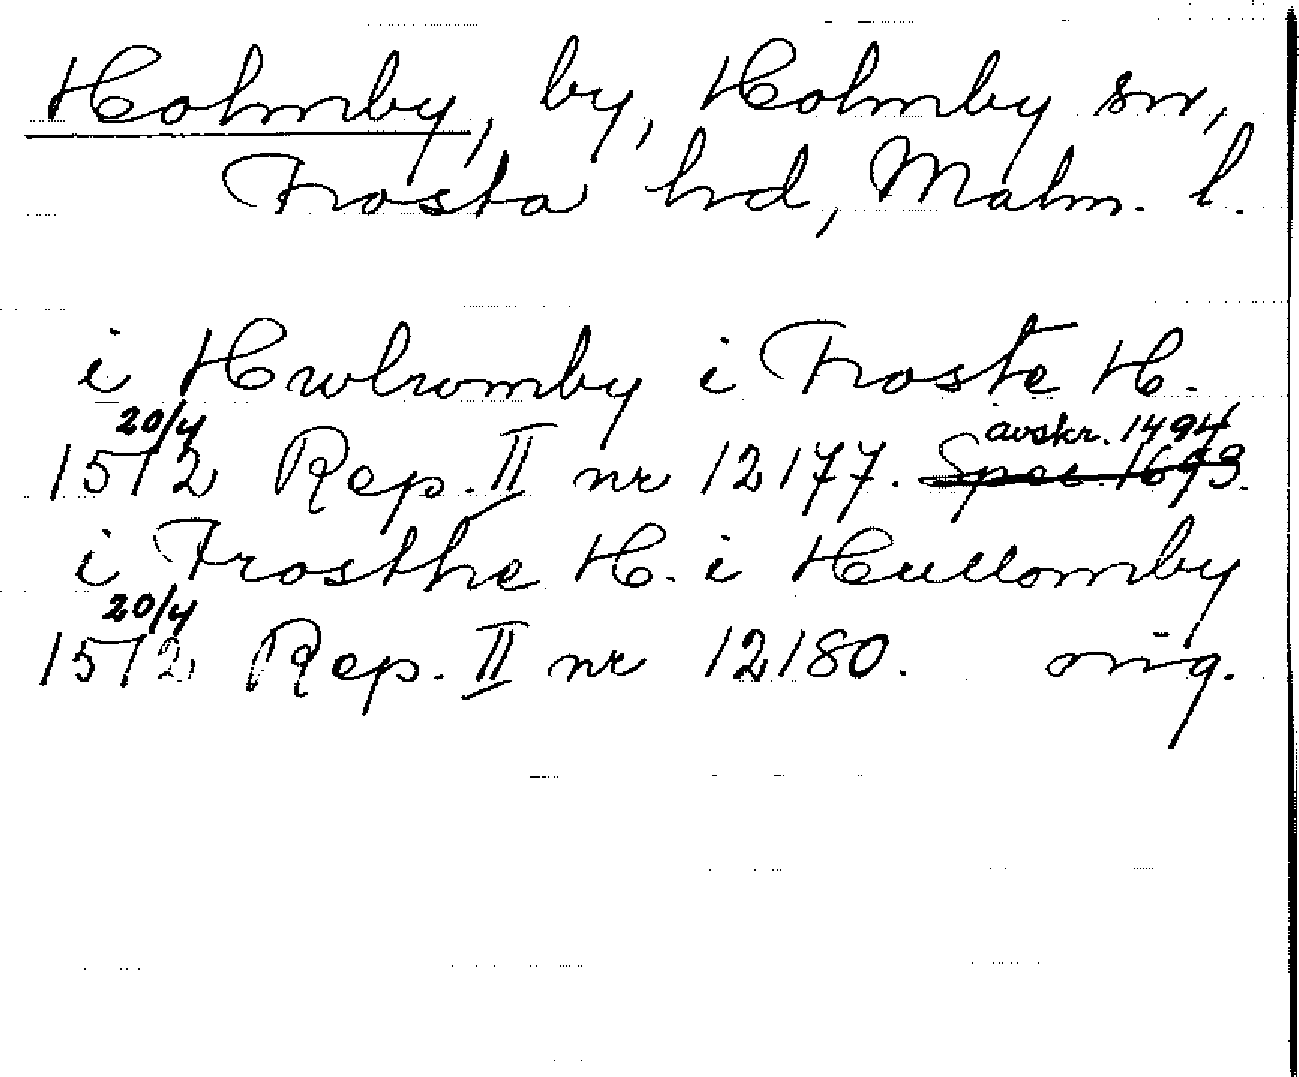 Holmby, by, Holmby sn,
Frosta hrd, Malm. l.
i Hwlwmby i Froste H.
20/4 avskr. 1494
1512 Rep. II nr 12177. Spec. 1693.
i Frosthe H. i Hullomby
20/4
1512 Rep. II nr 12180. orig.